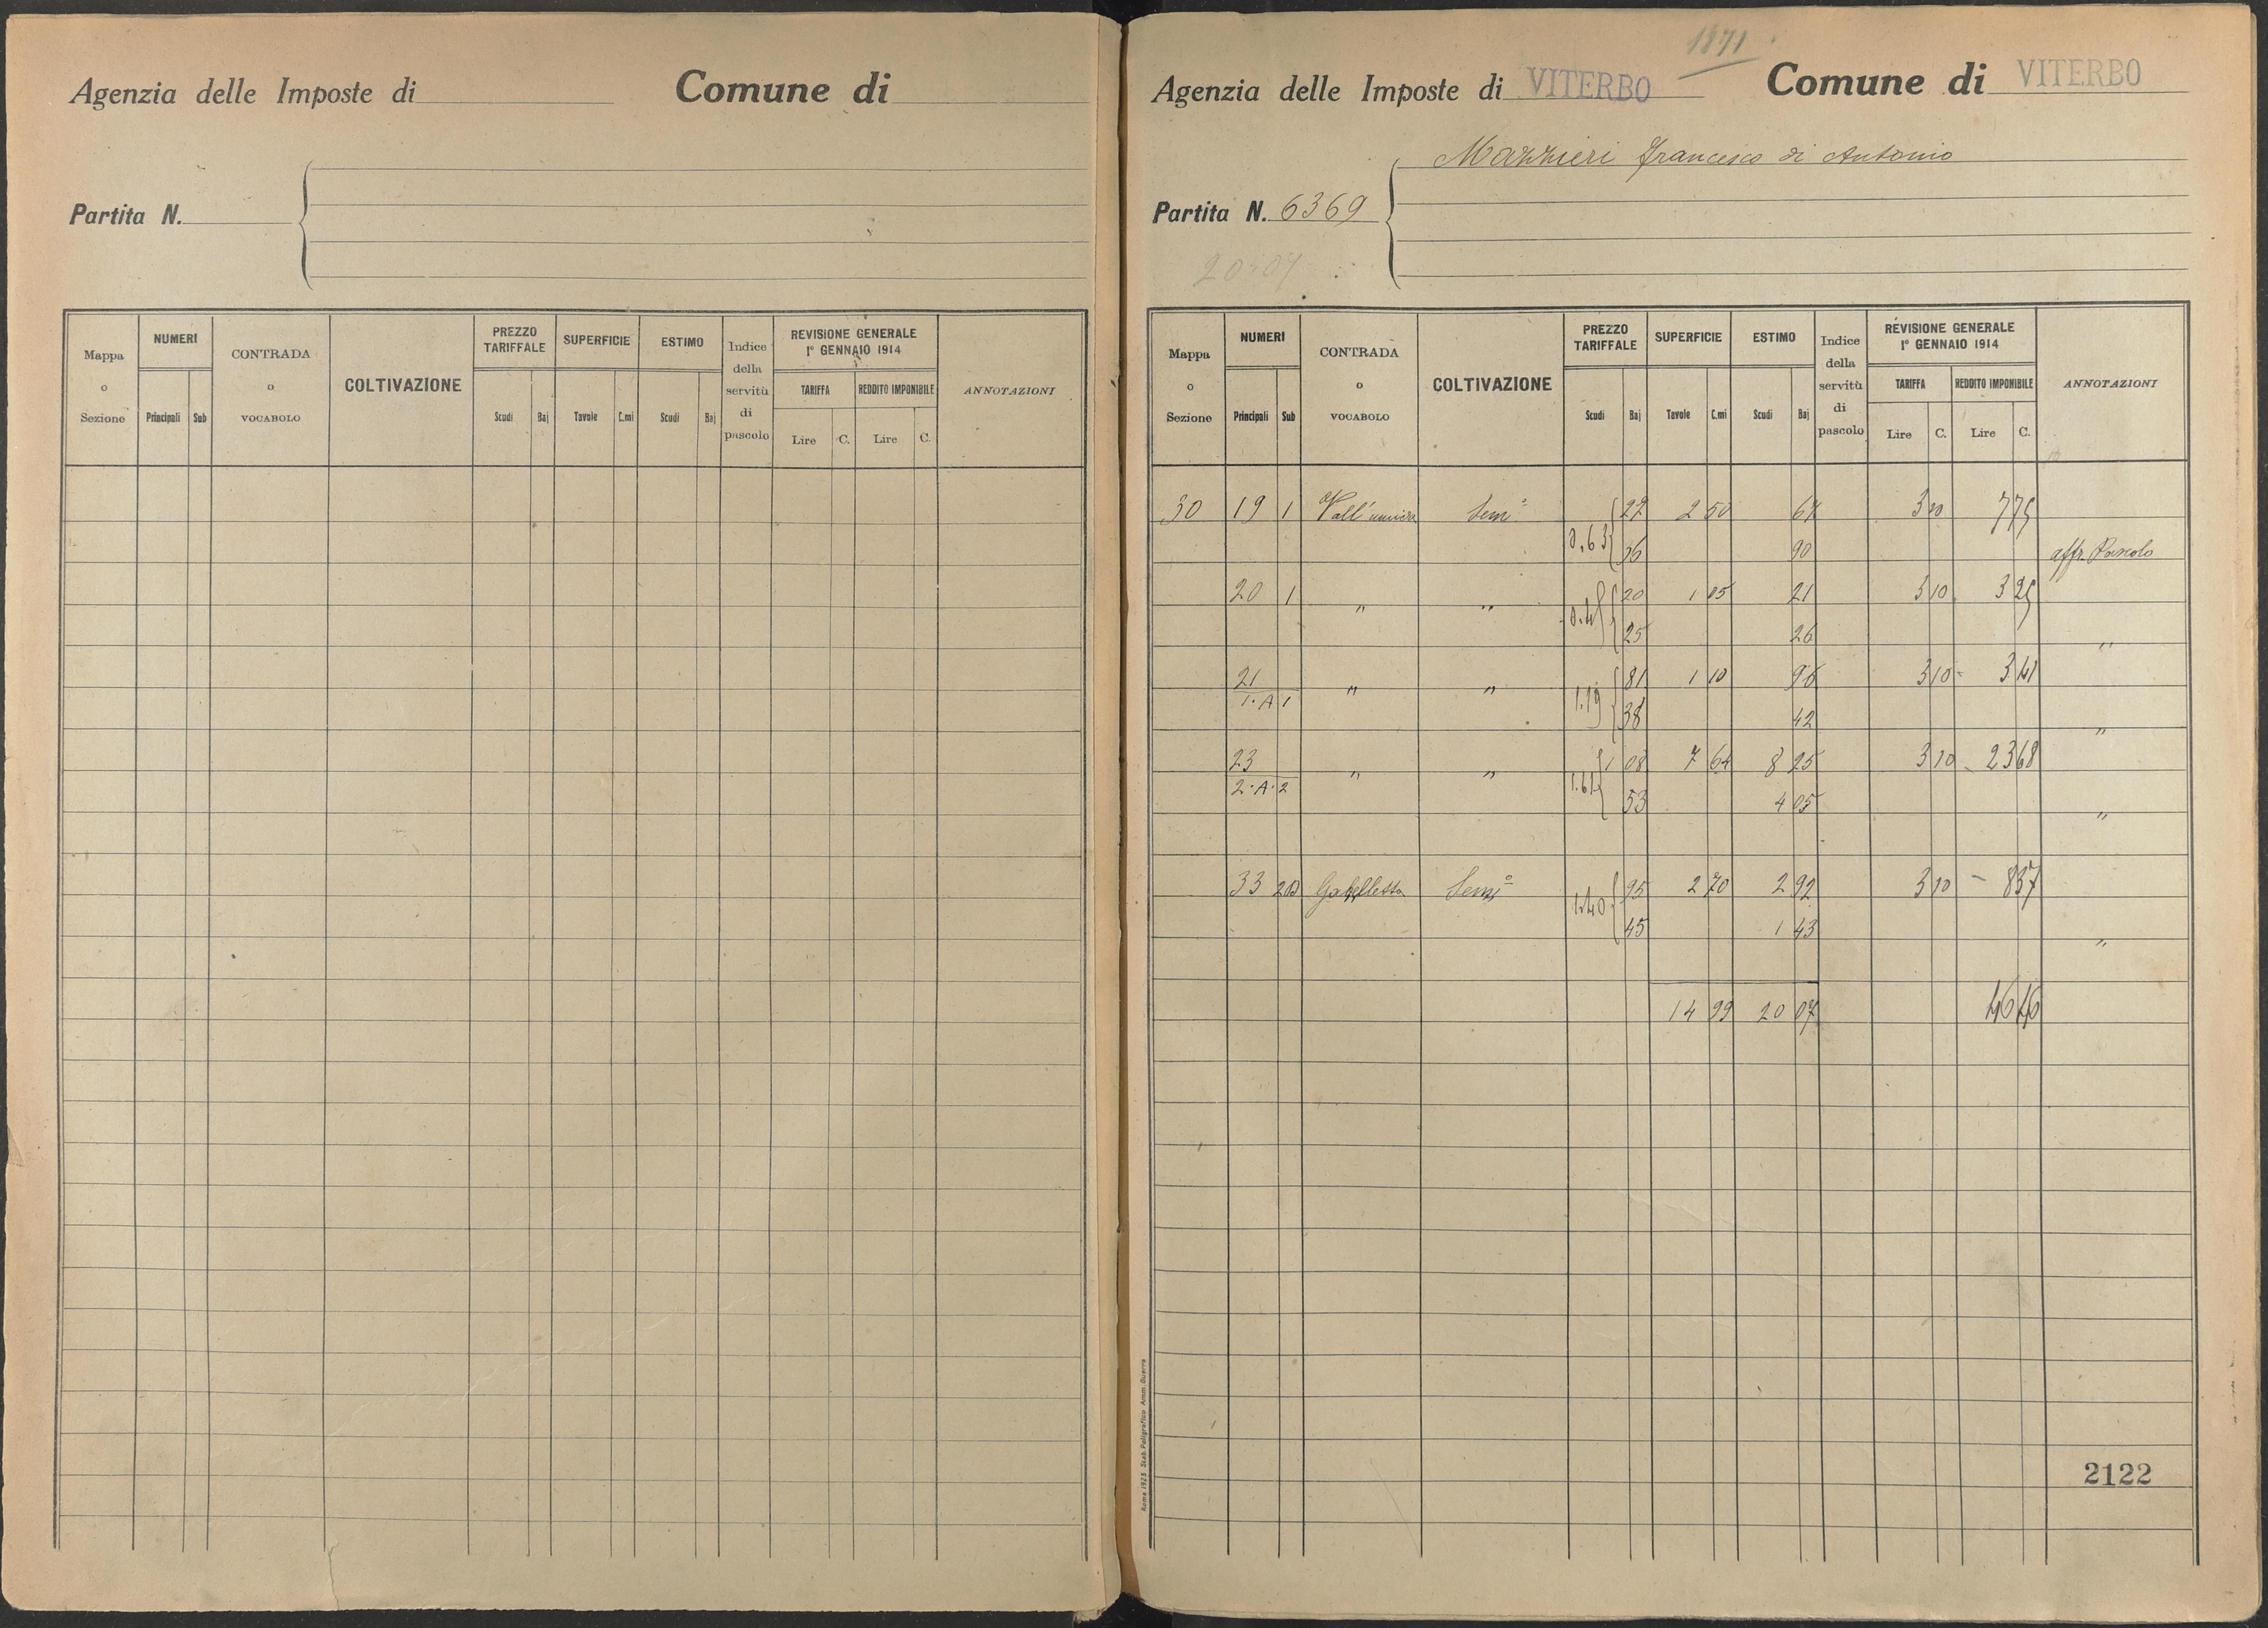 Agenzia delle Imposte di Comune di
Partita N.
Mappa o Sezione NUMERI Principali Sub CONTRADA o VOCABOLO COLTIVAZIONE PREZZO TARIFFALE Scudi Baj SUPERFICIE Tavole C.mi ESTIMO Scudi Baj Indice della servitù di pascolo REVISIONE GENERALE 1° GENNAIO 1914 TARIFFA Lire C. REDDITO IMPONIBILE Lire C. ANNOTAZIONI
1871
Agenzia delle Imposte di VITERBO Comune di VITERBO
Mazzieri Francesco di Antonio
Partita N. 6369
20:07
Mappa o Sezione NUMERI Principali Sub CONTRADA o VOCABOLO COLTIVAZIONE PREZZO TARIFFALE Scudi Baj SUPERFICIE Tavole C.mi ESTIMO Scudi Baj Indice della servitù di pascolo REVISIONE GENERALE 1° GENNAIO 1914 TARIFFA Lire C. REDDITO IMPONIBILE Lire C. ANNOTAZIONI
30 19 1 Sem° 2 50 3 10 7 75
0.63 36 90 aff. Pascolo
20 1 " " 20 1 05 21 3 10 3 25
25 26 "
21 " " 81 1 10 3 10 3 41
1.A 1 1.19 38 42 "
23 " " 1 08 7 64 8 25 3 10 23 68
2.A.2 1.61 53 4 05 "
33 Sem° 95 2 70 2 92 3 10 8 37
1.40 45 1 43 "
14 99 20 07 46 46
2122
Roma 1925 Stab. Poligrafico Amm. Guerra